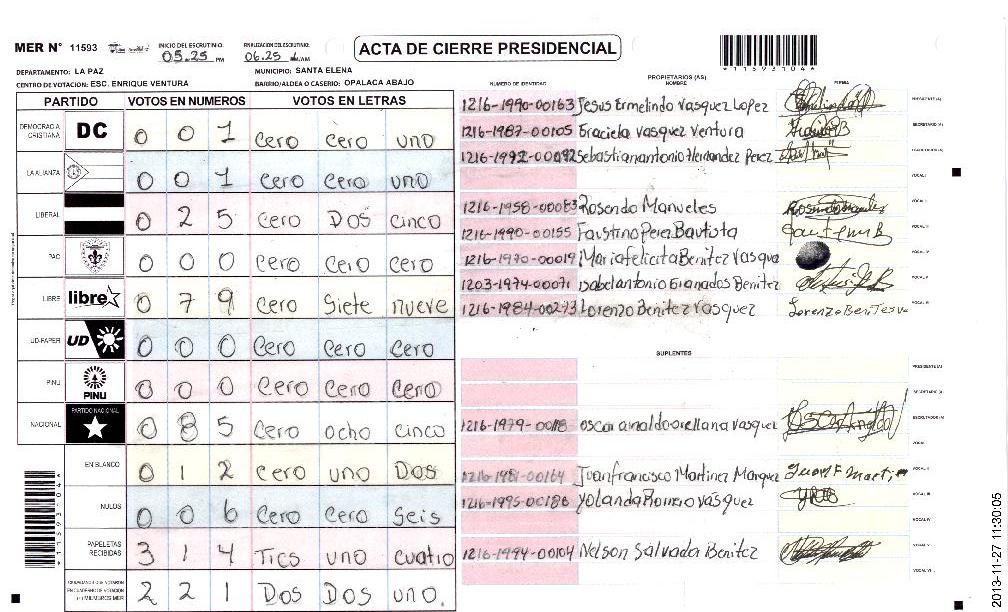 MER N° 11593
INICIO DEL ESCRUTINIO: 05.25 PM
FINALIZACIÓN DEL ESCRUTINIO: 06.25
ACTA DE CIERRE PRESIDENCIAL
*11593104*
DEPARTAMENTO: LA PAZ
MUNICIPIO: SANTA ELENA
CENTRO DE VOTACION: ESC. ENRIQUE VENTURA
BARRIO/ALDEA O CASERIO: OPALACA ABAJO
PARTIDO VOTOS EN NUMEROS VOTOS EN LETRAS
DEMOCRACIA CRISTIANA DC 0 0 1 cero cero uno
LA ALIANZA 0 0 1 cero cero uno
LIBERAL 0 2 5 cero Dos cinco
PAC 0 0 0 cero cero cero
LIBRE libre 0 7 9 cero Siete nueve
UD-FAPER UD 0 0 0 cero cero cero
PINU PINU 0 0 0 cero cero cero
NACIONAL PARTIDO NACIONAL 0 8 5 cero ocho cinco
EN BLANCO 0 1 2 cero uno Dos
NULOS 0 0 6 cero cero seis
PAPELETAS RECIBIDAS 3 1 4 Tres uno cuatro
CIUDADANOS QUE VOTARON EN CUADERNO DE VOTACION MIEMBROS MER 2 2 1 Dos Dos uno.
PROPIETARIOS (AS)
NUMERO DE IDENTIDAD NOMBRE FIRMA
1216-1990-00163 Jesus Ermelindo Vasquez Lopez PRESIDENTE (A)
1216-1987-00105 Graciela Vasquez Ventura SECRETARIO (A)
1216-1992-00092 Sebastianantonio Hernandez Perez ESCRUTADOR (A)
VOCAL I
1216-1958-00083 Rosendo Manueles VOCAL II
1216-1990-00155 Faustino Perez Bautista VOCAL III
1216-1970-00019 Mariafelicita Benitez Vasque VOCAL IV
1203-1974-00071 isabelantonio Granados Benitez VOCAL V
1216-1984-00273 Lorenzo Benitez Vasquez Lorenzo Benites V VOCAL VI
SUPLENTES
PRESIDENTE (A)
SECRETARIO (A)
1216-1979-00118 oscar arnaldo orellana vasquez ESCRUTADOR (A)
VOCAL I
1216-1981-00164 Juanfrancisco Martinez Marquez Juan F Marti VOCAL II
1216-1995-00186 Yolanda Romero vasquez VOCAL III
VOCAL IV
1216-1994-00104 Nelson Salvador Benitez VOCAL V
VOCAL VI
*11593104*
2013-11-27 11:30:05